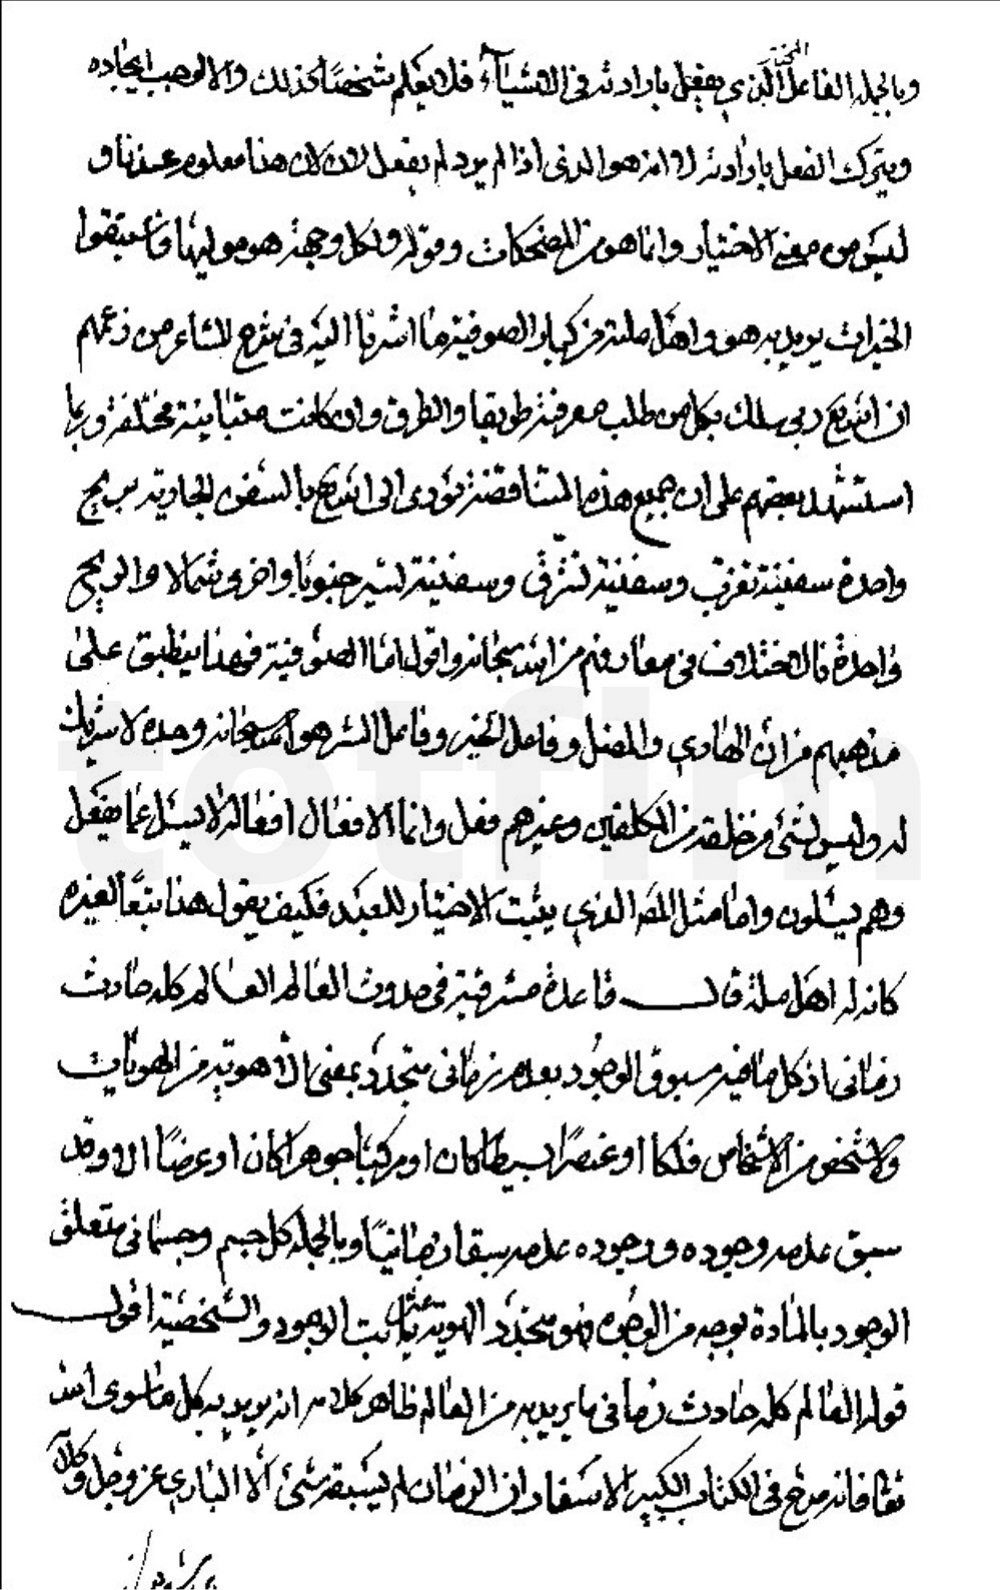 وبالجملة الفاعل المختار الذي يفعل بارادته في الاشياء فلا يعلم شخصًا كذلك والا لوجب ايجاده
ويترك الفعل بارادته لا انه هو الذي اذا لم يرد لم يفعل لان هذا معلوم عندنا و
ليس من معنى الاختيار وانما هو من المضحكات وقوله ولكل وجهة هو موليها فاستبقوا
الخيرات يريد به هو واهل ملته من كبار الصوفية ما اشرنا اليه في شرح المشاعر من زعمهم
ان الله تع ربي سلك بكل من طلب معرفته طريقا والطرق وان كانت متباينة مختلفة وربما
استشهد بعضهم على ان جميع هذه المتناقضة تؤدى الى الله تع بالسفن الجارية بريح
واحدة سفينة تغرب وسفينة تشرق وسفينة تسير جنوبا واخرى شمالا والريح
واحدة فالاختلاف في معارفهم من الله سبحانه واقول اما الصوفية فهذا ينطبق على
مذهبهم من ان الهادي والمضل وفاعل الخير وفاعل الشر هو الله سبحانه وحده لا شريك
له وليس لشئ من خلقه من المكلفين وغيرهم فعل وانما الافعال افعاله لا يسئل عما يفعل
وهم يسئلون واما مثل المص الذي يثبت الاختيار للعبد فكيف يقول هذا تبعًا لغيره
كانه له اهل ملة قال قاعدة مشرقية في حدوث العالم العالم كله حادث
زماني اذ كل ما فيه مسبوق الوجود بعدم زماني متجدد بمعنى الا هوية من الهويات
ولا شخص من الاشخاص فلكا او عنصرًا بسيطا كان او مركبًا جوهرا كان او عرضًا الا وقد
سبق عدمه وجوده ووجوده عدمه سبقا زمانيًا وبالجملة كل جسم وجسماني متعلق
الوجود بالمادة بوجه من الوجوه فهو متجدد الهوية غير ثابت الوجود والشخصية اقول
قوله العالم كله حادث زماني ما يريد به من العالم ظاهر كلامه انه يريد به كل ما سوى الله
تعا فانه صرح في الكتاب الكبير الاسفار ان الزمان لم يسبقه شئ الا الباري عز وجل وكلامه